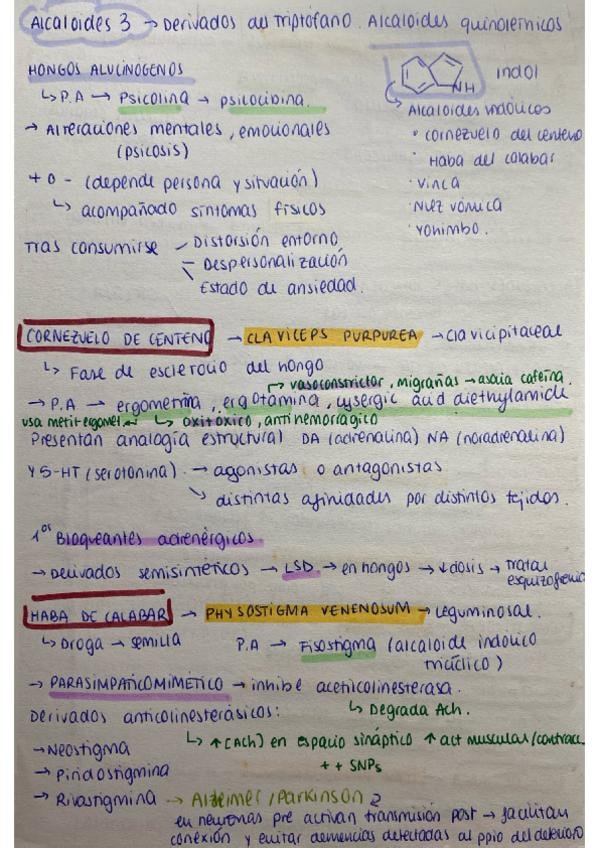 Alcaloides 3 → Derivados del Triptófano. Alcaloides quinoleínicos
HONGOS ALUCINÓGENOS
↳ P.A → Psicolina → psilocibina.
→ Alteraciones mentales, emocionales
(psicosis)
+ o - (depende persona y situación)
↳ acompañado síntomas físicos
Tras consumirse - Distorsión entorno
- Despersonalización
Estado de ansiedad.
NH indol
Alcaloides indólicos
· cornezuelo del centeno
· Haba del calabar
· Vinca
· Nuez vómica
· Yohimbo.
CORNEZUELO DE CENTENO → CLAVICEPS PURPUREA → Clavicipitaceae
↳ Fase de esclerocio del hongo
↱ vasoconstrictor, migrañas → asocia cafeína.
→ P.A → ergometrina, ergotamina, lysergic acid diethylamide
usa metil-ergomet. ↳ oxitóxico, antinemorrágico
Presentan analogía estructural DA (adrenalina) NA (noradrenalina)
Y 5-HT (serotonina). → agonistas o antagonistas
↘ distintas afinidades por distintos tejidos.
1ºs Bloqueantes adrenérgicos
→ Derivados semisintéticos → LSD → en hongos → ↓dosis → tratar
esquizofrenia
HABA DE CALABAR → PHYSOSTIGMA VENENOSUM → Leguminosae.
↳ Droga → semilla P.A → Fisostigma (alcaloide indólico
tricíclico)
→ PARASIMPATICOMIMETICO → inhibe acetilcolinesterasa.
↳ Degrada Ach.
Derivados anticolinesterásicos:
↳ ↑[Ach] en espacio sináptico ↑ act muscular/contracc.
++ SNPs
→ Neostigma
→ Piridostigmina
→ Rivastigmina → Alzeimer/Parkinson
en neuronas pre activan transmisión post → facilitan
conexión y evitar demencias detectadas al ppio del deterioro